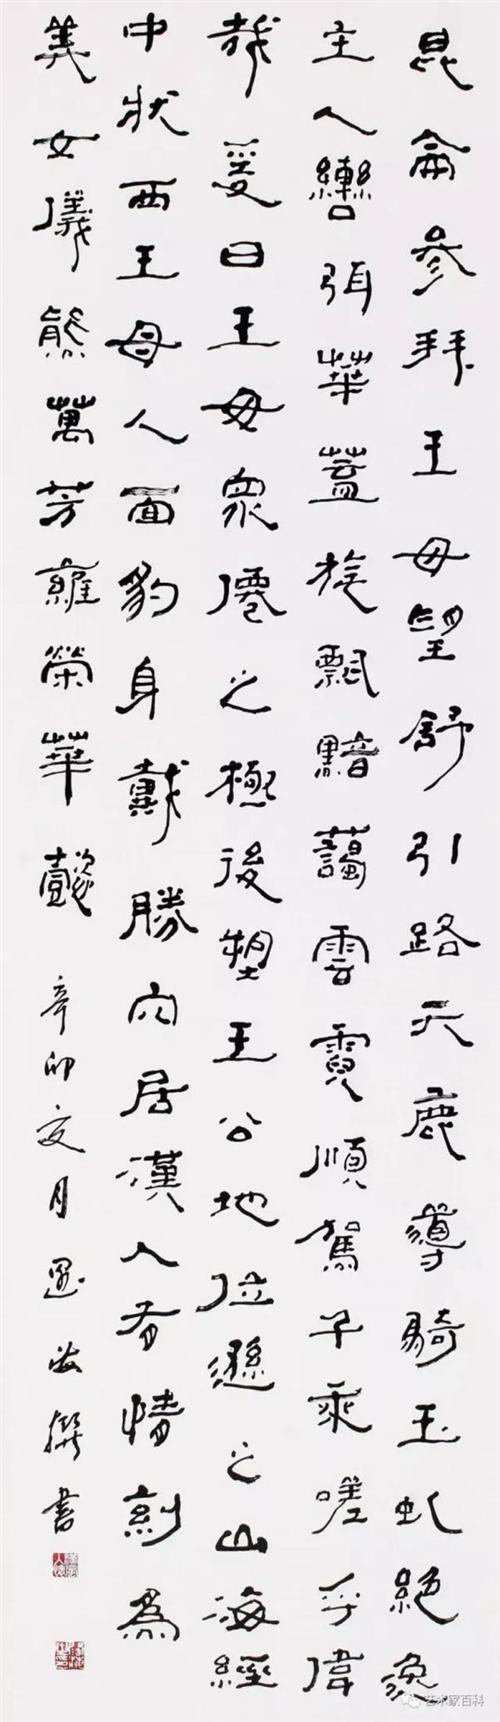 昆侖參拜王母望舒引路天鹿導騎玉虬絕象
主人轡弭華蓋旄飄黯藹雲霓順駕予乘嗟乎偉
哉爰曰王母衆僊之極後塑王公地位遜之山海經
中狀西王母人面豹身戴勝穴居漢人有情刻爲
美女儀態萬芳雍榮華懿
辛卯夏月海撰書
艺术家百科